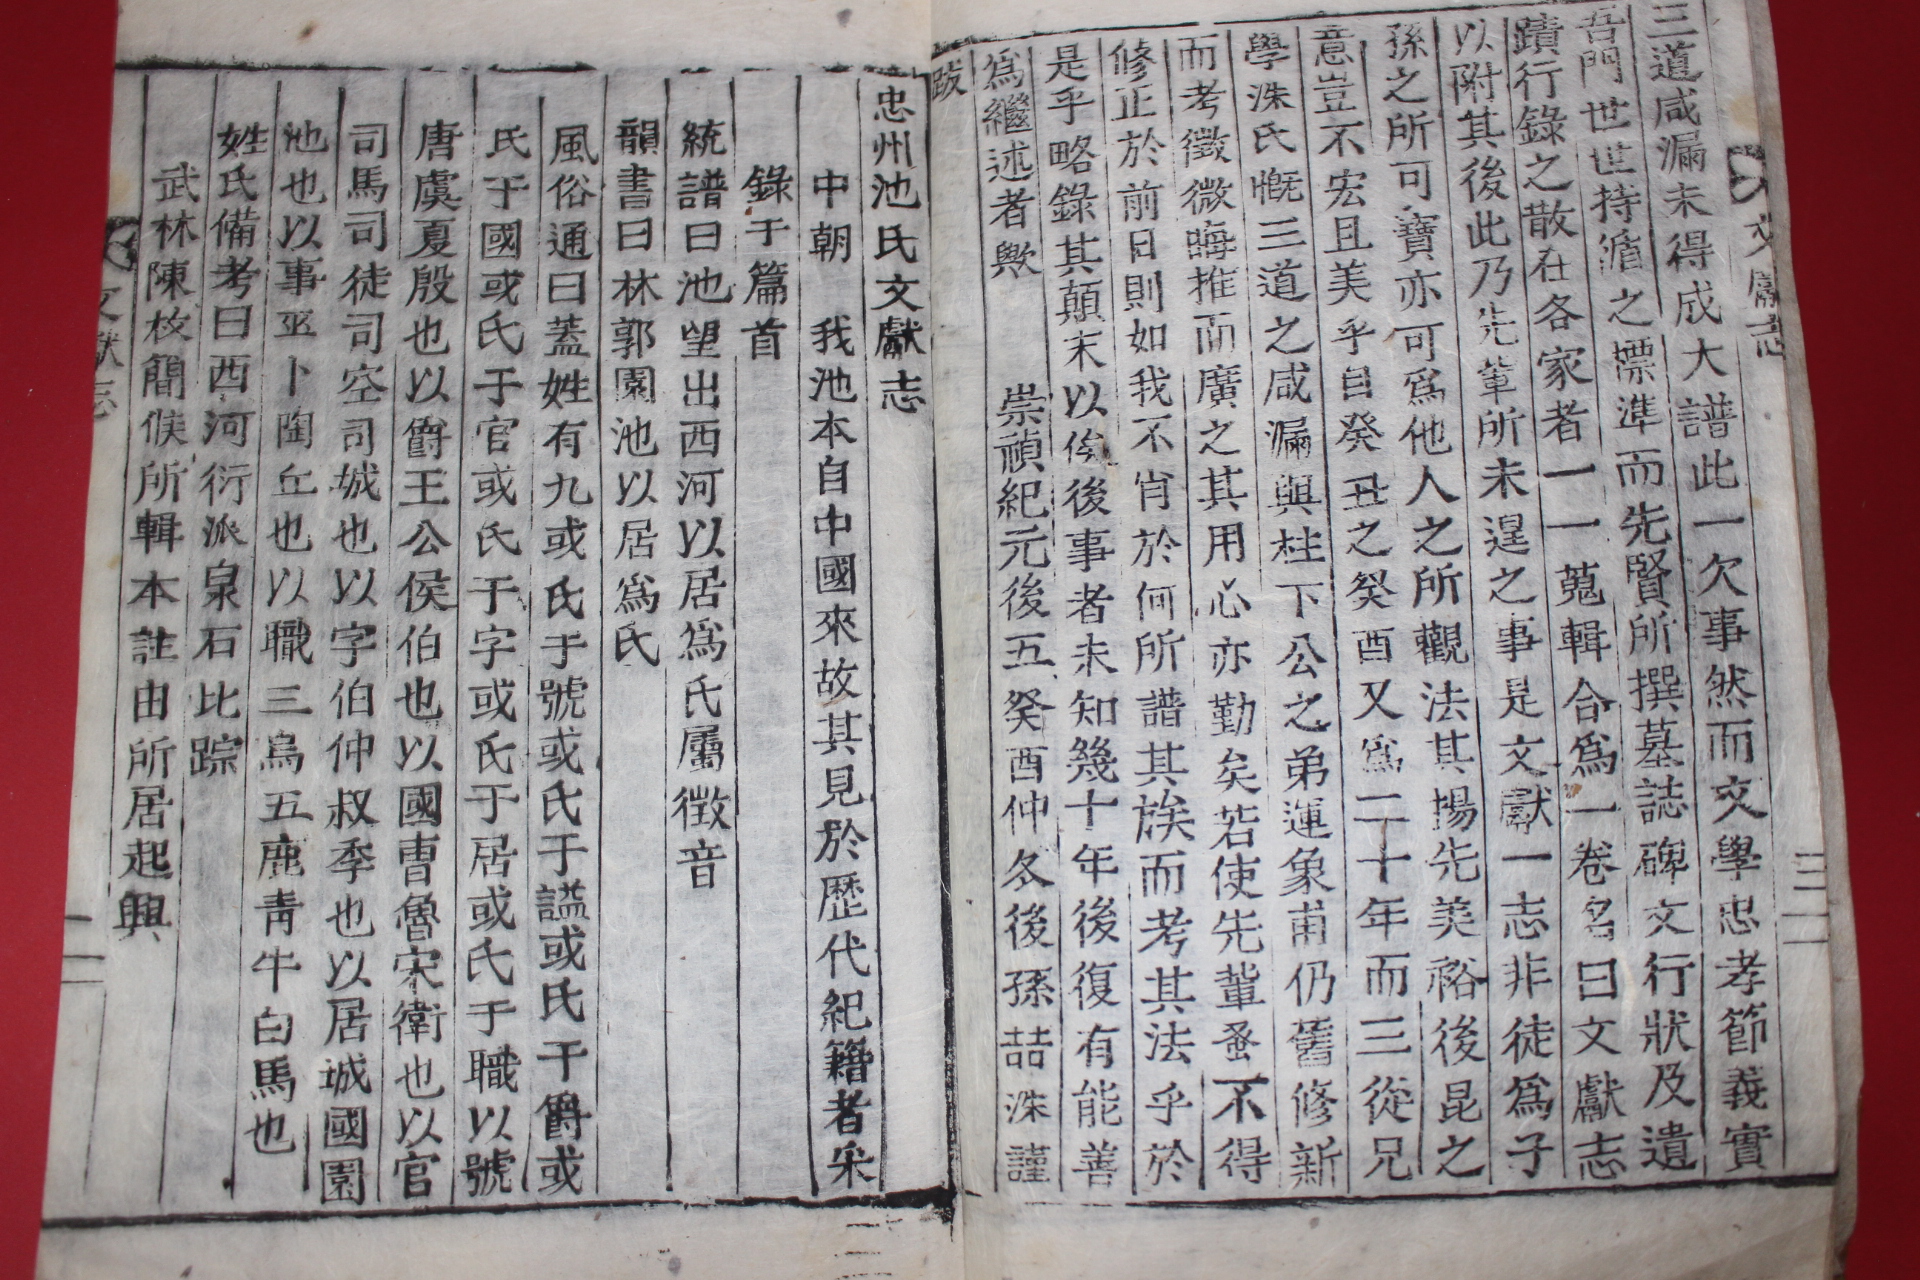 三道咸漏未得成大譜此一欠事然而文學忠孝節義實
吾門世世持循之標準而先賢所撰墓誌碑文行狀及遺
蹟行錄之散在各家者一一蒐輯合爲一卷名曰文獻志
以附其後此乃先輩所未遑之事是文獻一志非徒爲子
孫之所可寶亦可爲他人之所觀法其揚先美裕後昆之
意豈不宏且美乎自癸丑之癸酉又爲二十年而三從兄
學洙氏慨三道之咸漏與柱下公之弟運象甫仍舊修新
而考徵微晦推而廣之其用心亦勤矣若使先輩蚤不得
修正於前日則如我不肖於何所譜其族而考其法乎於
是乎略錄其顛末以俟後事者未知幾十年後復有能善
爲繼述者歟 崇禎紀元後五癸酉仲冬後孫喆洙謹
跋
文獻志
三
忠州池氏文獻志
中朝 我池本自中國來故其見於歷代紀籍者采
錄于篇首
統譜曰池望出西河以居爲氏屬徵音
韻書曰林郭園池以居爲氏
風俗通曰蓋姓有九或氏于號或氏于謚或氏于爵或
氏于國或氏于官或氏于字或氏于居或氏于職以號
唐虞夏殷也以爵王公侯伯也以國曹魯宋衛也以官
司馬司徒司空司城也以字伯仲叔季也以居城國園
池也以事巫卜陶丘也以職三烏五鹿靑牛白馬也
姓氏備考曰西河衍派泉石比踪
武林陳枚簡侯所輯本註由所居起興
文獻志
一